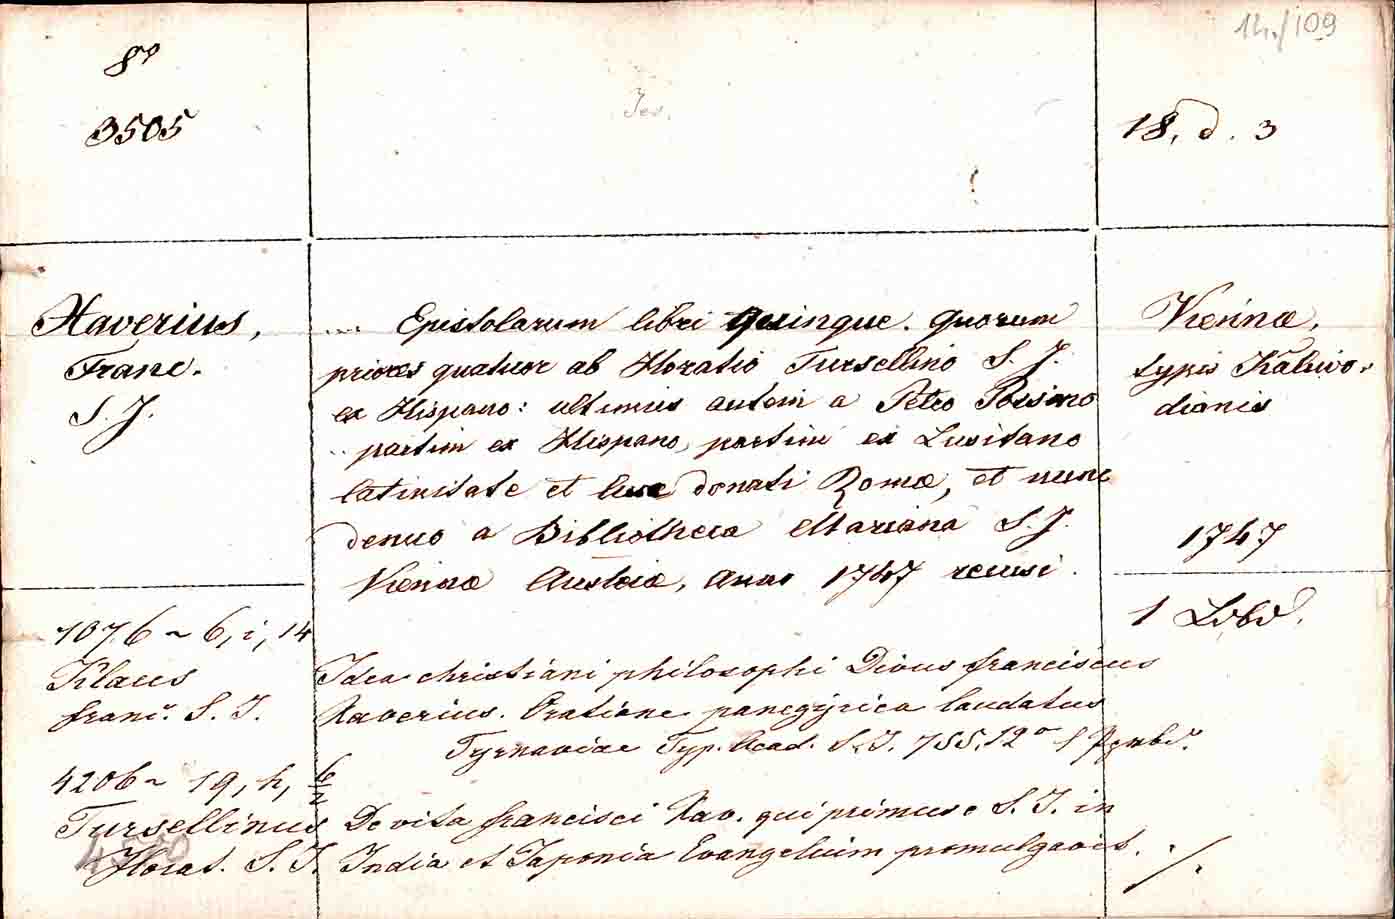 14./109
8º
3505
Jes.
18, d. 3
Xaverius,
Franc.
S. J.
... Epistolarum libri quinque. Quorum
priores quatuor ab Horatio Tursellino S. J.
ex Hispano: ultimus autem a Petro Possino
partim ex Hispano, partim ex Lusitano
latinitate et luce donati Romæ, et nunc
denuo a Bibliotheca Mariana S. J.
Viennæ Austriæ, Anno 1747 recusi.
Viennæ,
typis Kaliwo-
dianis
1747
1 Lbd.
1076 ~ 6, i, 14
Klaus
Franc. S. J.
Idea christiani philosophi Divus Franciscus
Xaverius. Oratione panegyrica laudatus
Tyrnaviae Typ. Acad. S. J. 755. 12º 1
4206 ~ 19, h, 6/2
Tursellinus
Horat. S. J.
De vita Francisci Xav. qui primus e S. J. in
India et Japonia Evangelium promulgavit. ./.